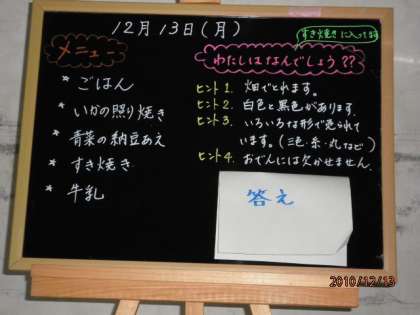 12月13日(月)
すき焼きに入ってるよ
メニュー
* ごはん
* いかの照り焼き
* 青菜の納豆あえ
* すき焼き
* 牛乳
わたしはなんでしょう??
ヒント1. 畑でとれます。
ヒント2. 白色と黒色があります。
ヒント3. いろいろな形で売られて
います。(三角・糸・丸など)
ヒント4. おでんには欠かせません。
答え
2010/12/13